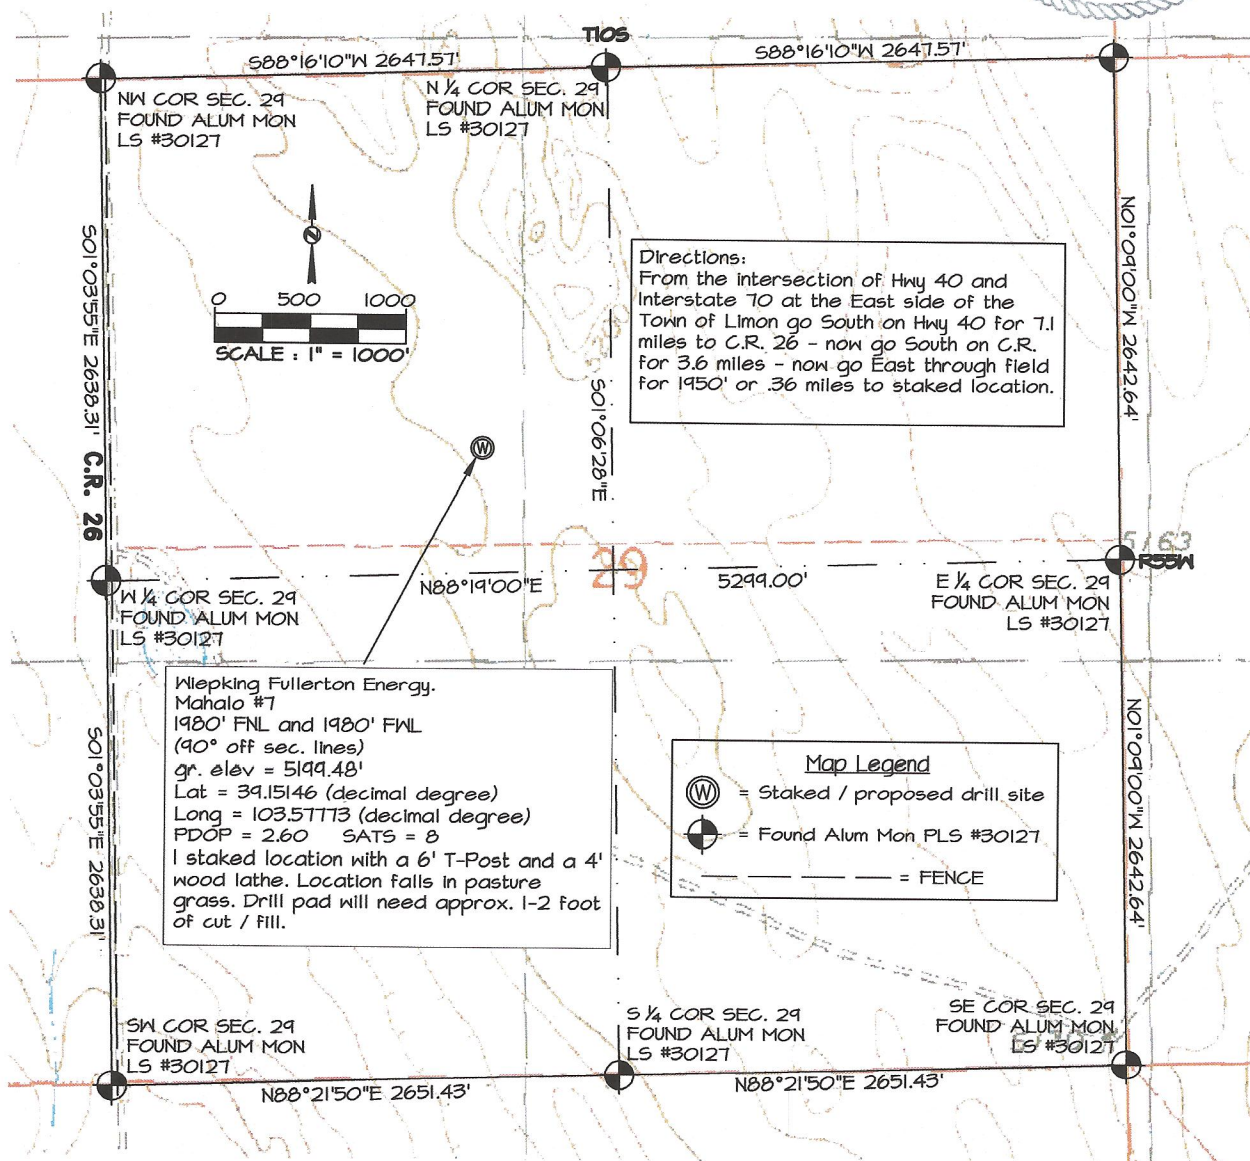 T10S
S88°16'10"W 2647.57'
S88°16'10"W 2647.57'
NW COR SEC. 29
FOUND ALUM MON
LS #30127
N ¼ COR SEC. 29
FOUND ALUM MON
LS #30127
S01°03'55"E 2638.31'
C.R. 26
N
0 500 1000
SCALE : 1" = 1000'
Directions:
From the intersection of Hwy 40 and
Interstate 70 at the East side of the
Town of Limon go South on Hwy 40 for 7.1
miles to C.R. 26 - now go South on C.R.
for 3.6 miles - now go East through field
for 1950' or .36 miles to staked location.
N01°09'00"W 2642.64'
S01°06'28"E
W
29
5163
R55W
W ¼ COR SEC. 29
FOUND ALUM MON
LS #30127
N88°19'00"E
5299.00'
E ¼ COR SEC. 29
FOUND ALUM MON
LS #30127
Wiepking Fullerton Energy.
Mahalo #7
1980' FNL and 1980' FWL
(90° off sec. lines)
gr. elev = 5199.48'
Lat = 39.15146 (decimal degree)
Long = 103.57773 (decimal degree)
PDOP = 2.60 SATS = 8
I staked location with a 6' T-Post and a 4'
wood lathe. Location falls in pasture
grass. Drill pad will need approx. 1-2 foot
of cut / fill.
Map Legend
W = Staked / proposed drill site
= Found Alum Mon PLS #30127
= FENCE
S01°03'55"E 2638.31'
N01°09'00"W 2642.64'
SW COR SEC. 29
FOUND ALUM MON
LS #30127
S ¼ COR SEC. 29
FOUND ALUM MON
LS #30127
SE COR SEC. 29
FOUND ALUM MON
LS #30127
N88°21'50"E 2651.43'
N88°21'50"E 2651.43'